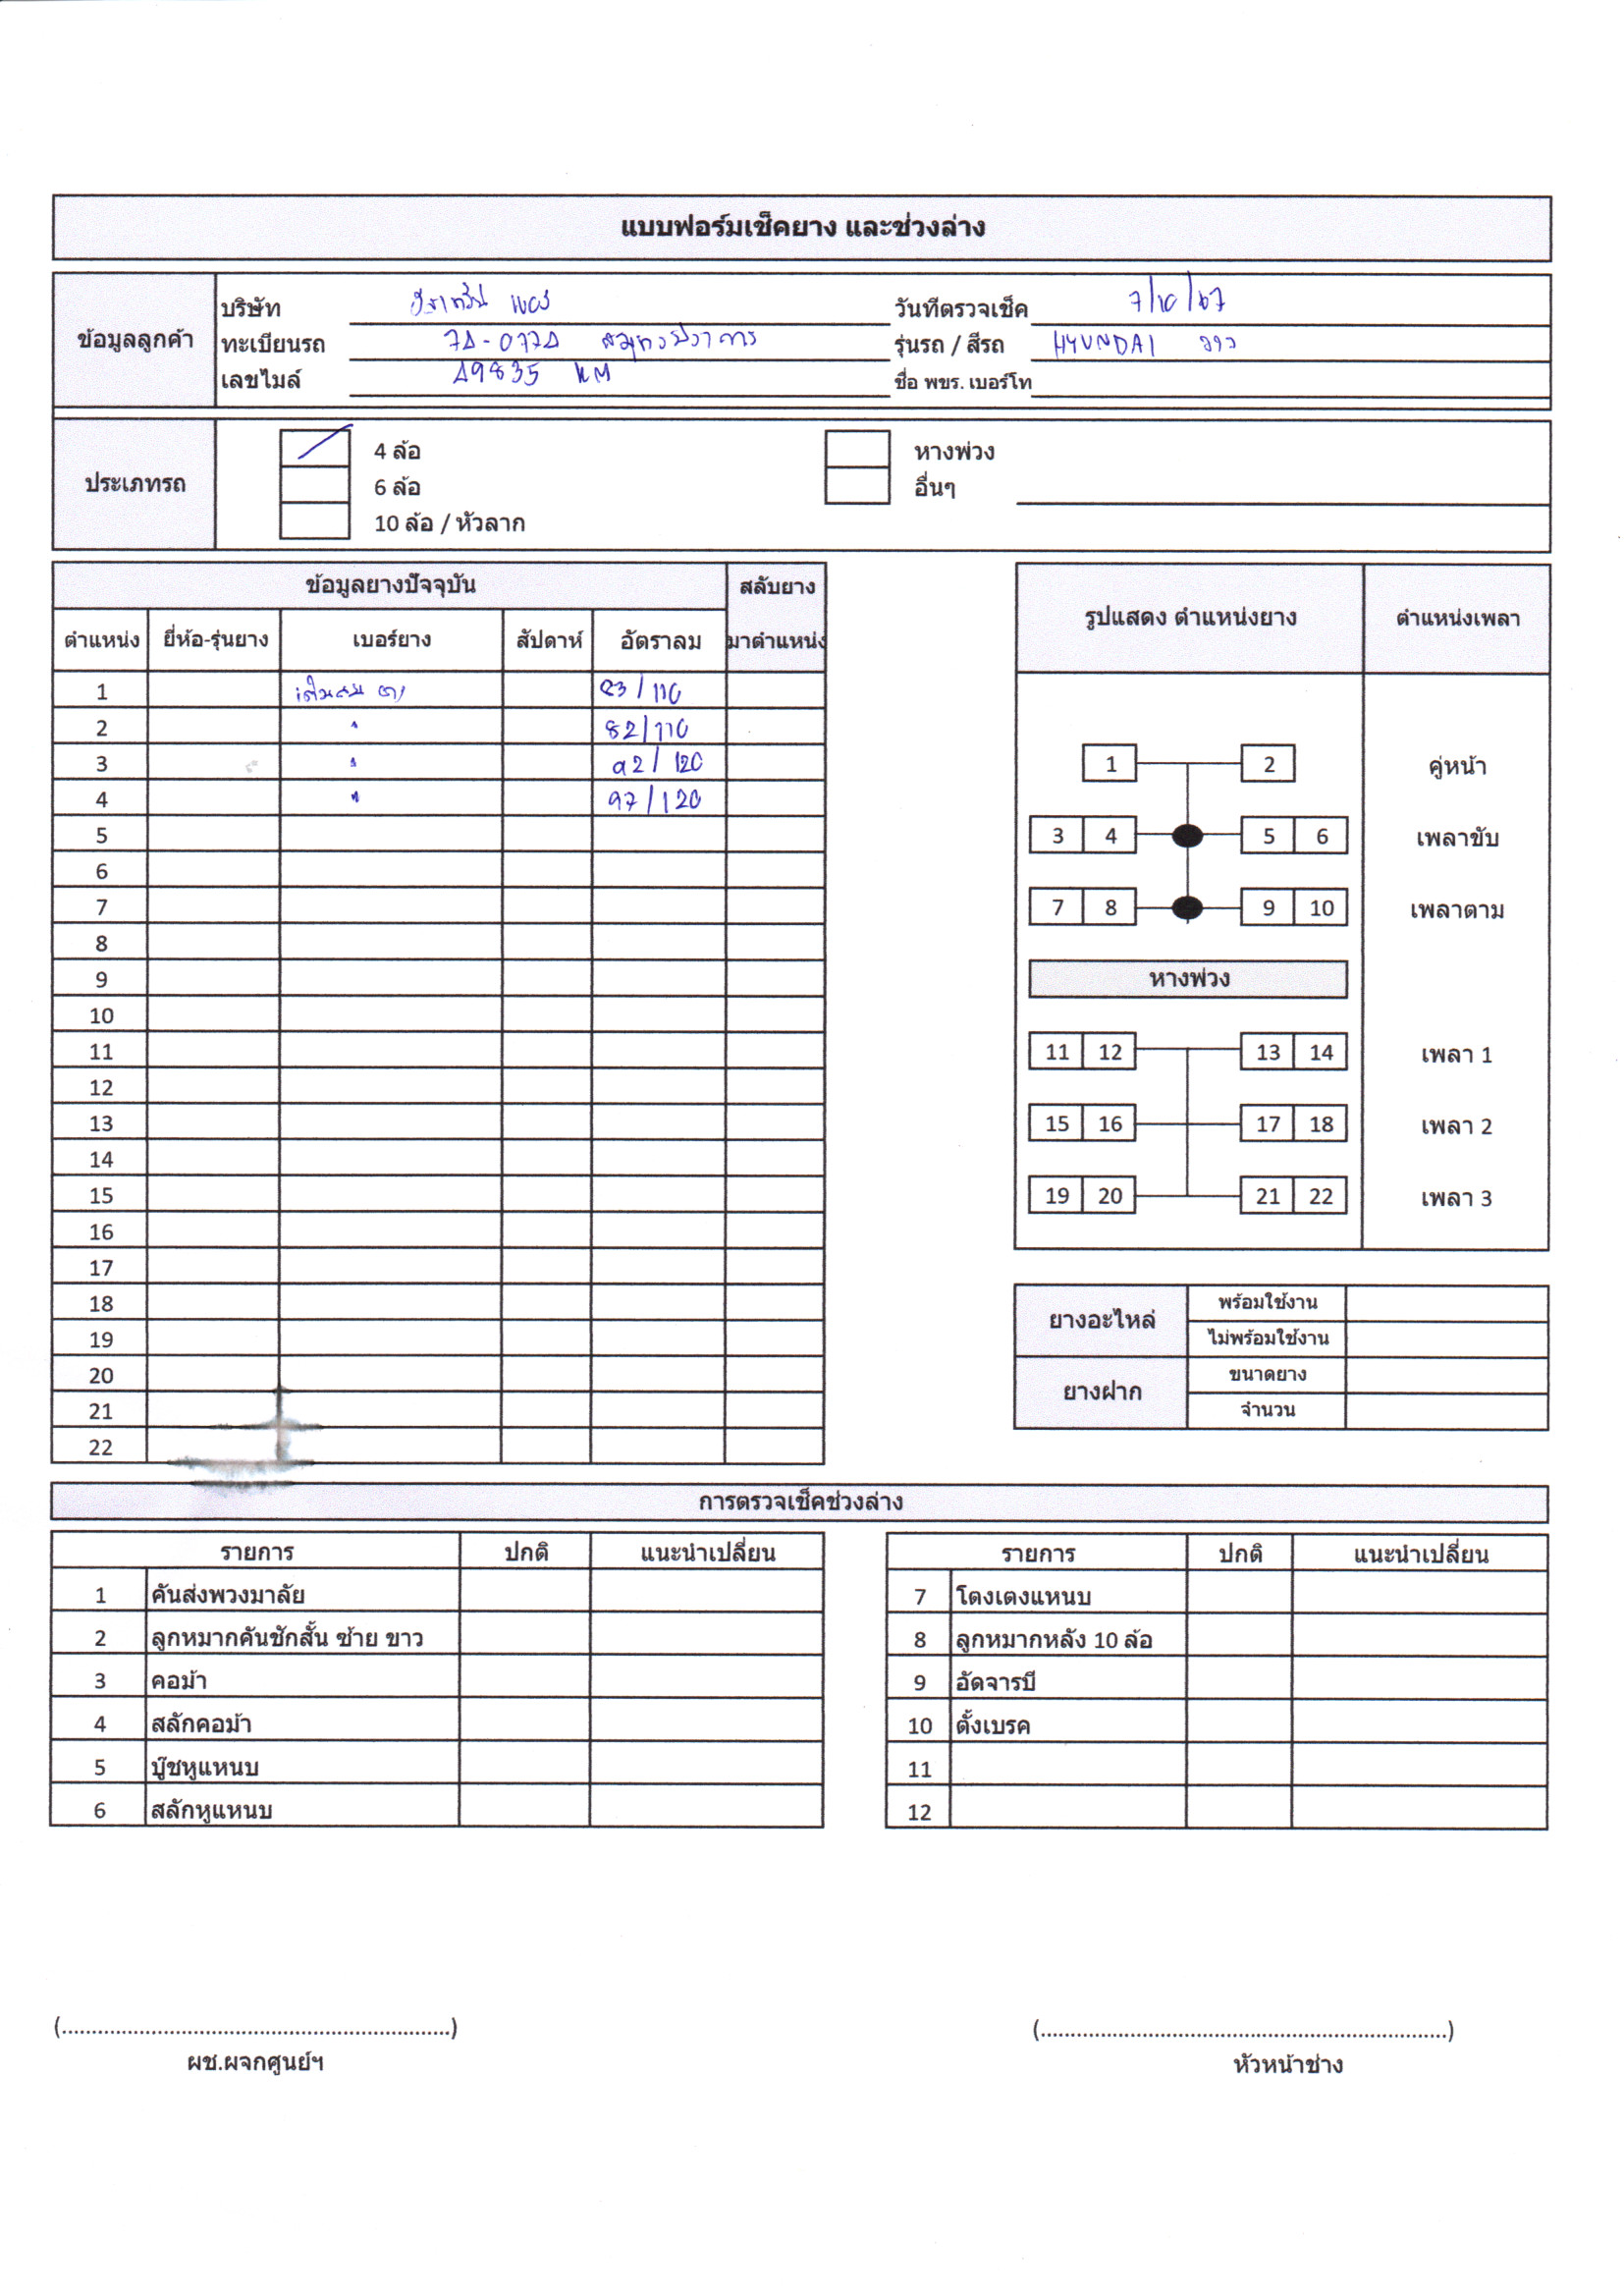 แบบฟอร์มเช็คยาง และช่วงล่าง
ข้อมูลลูกค้า
บริษัท
วันที่ตรวจเช็ค 7/10/67
ทะเบียนรถ 74-0774 สมุทรปราการ
รุ่นรถ / สีรถ HYUNDAI ขาว
เลขไมล์ 49835 KM
ชื่อ พขร. เบอร์โท
ประเภทรถ
4 ล้อ
หางพ่วง
6 ล้อ
อื่นๆ
10 ล้อ / หัวลาก
ข้อมูลยางปัจจุบัน
สลับยาง
มาตำแหน่ง
ตำแหน่ง ยี่ห้อ-รุ่นยาง เบอร์ยาง สัปดาห์ อัตราลม
1 เติมลม 83/110
2 " 82/110
3 " 92/120
4 " 97/120
5
6
7
8
9
10
11
12
13
14
15
16
17
18
19
20
21
22
รูปแสดง ตำแหน่งยาง ตำแหน่งเพลา
1 2 คู่หน้า
3 4 5 6 เพลาขับ
7 8 9 10 เพลาตาม
หางพ่วง
11 12 13 14 เพลา 1
15 16 17 18 เพลา 2
19 20 21 22 เพลา 3
ยางอะไหล่
พร้อมใช้งาน
ไม่พร้อมใช้งาน
ยางฝาก
ขนาดยาง
จำนวน
การตรวจเช็คช่วงล่าง
รายการ ปกติ แนะนำเปลี่ยน
1 คันส่งพวงมาลัย
2 ลูกหมากคันชักสั้น ซ้าย ขาว
3 คอม้า
4 สลักคอม้า
5 บู๊ชหูแหนบ
6 สลักหูแหนบ
รายการ ปกติ แนะนำเปลี่ยน
7 โตงเตงแหนบ
8 ลูกหมากหลัง 10 ล้อ
9 อัดจารบี
10 ตั้งเบรค
11
12
(.................................................................)
ผช.ผจกศูนย์ฯ
(....................................................................)
หัวหน้าช่าง